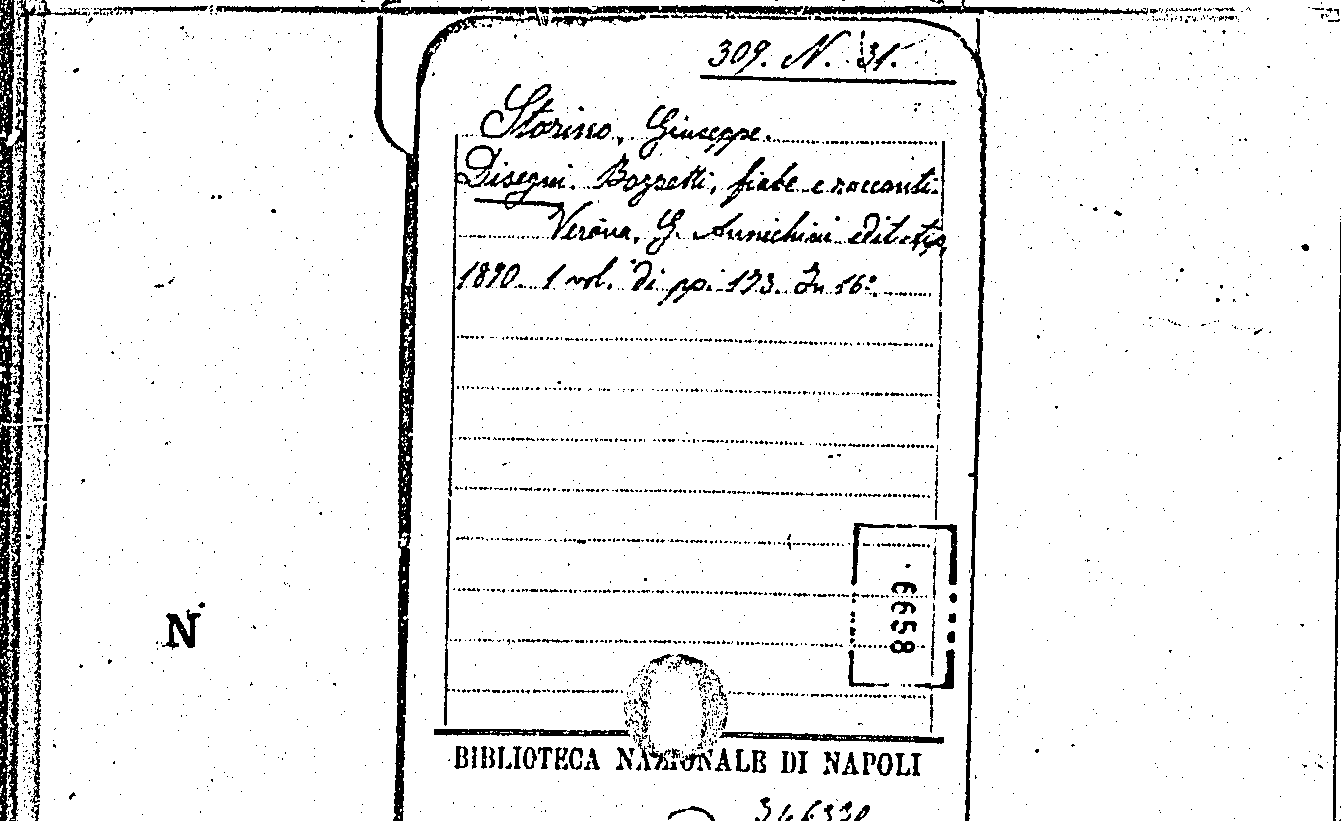 309. N. 31.
Storino, Giuseppe.
Disegni. Bozzetti, fiabe e racconti.
Verona, G. Annichini edit. tip.
1890. 1 vol. di pp. 193. In 16º.
6658
N
BIBLIOTECA NAZIONALE DI NAPOLI
346330